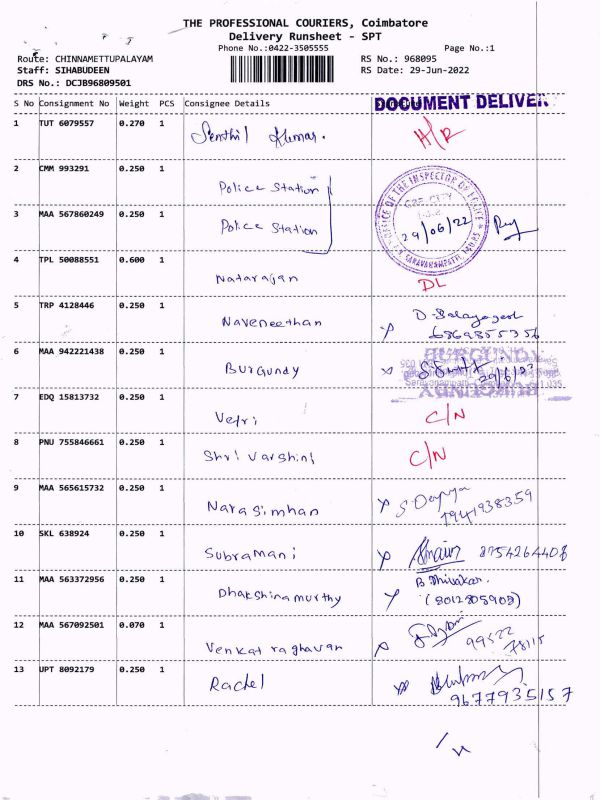 THE PROFESSIONAL COURIERS, Coimbatore
Delivery Runsheet - SPT
Phone No.:0422-3505555
Page No.:1
Route: CHINNAMETTUPALAYAM
RS No.: 968095
Staff: SIHABUDEEN
RS Date: 29-Jun-2022
DRS No.: DCJB96809501
S No Consignment No Weight PCS Consignee Details
DOCUMENT DELIVER
1 TUT 6079557 0.270 1 Senthil Kumar. H/R
2 CMM 993291 0.250 1 Police Station
OFFICE OF THE INSPECTOR OF POLICE
3 MAA 567860249 0.250 1 Police Station 29/06/22
4 TPL 50088551 0.600 1 Natarajan DL
5 TRP 4128446 0.250 1 Naveneethan
6 MAA 942221438 0.250 1 Burgundy
BURGUNDY
7 EDQ 15813732 0.250 1 Vetri C/N
8 PNU 755846661 0.250 1 Shri Varshini C/N
9 MAA 565615732 0.250 1 Narasimhan
10 SKL 638924 0.250 1 Subramani 8754264408
11 MAA 563372956 0.250 1 Dhakshinamurthy B. Thivakar.
(8012805908)
12 MAA 567092501 0.070 1 Venkat raghavan 99522
78115
13 UPT 8092179 0.250 1 Rachel
9677935157